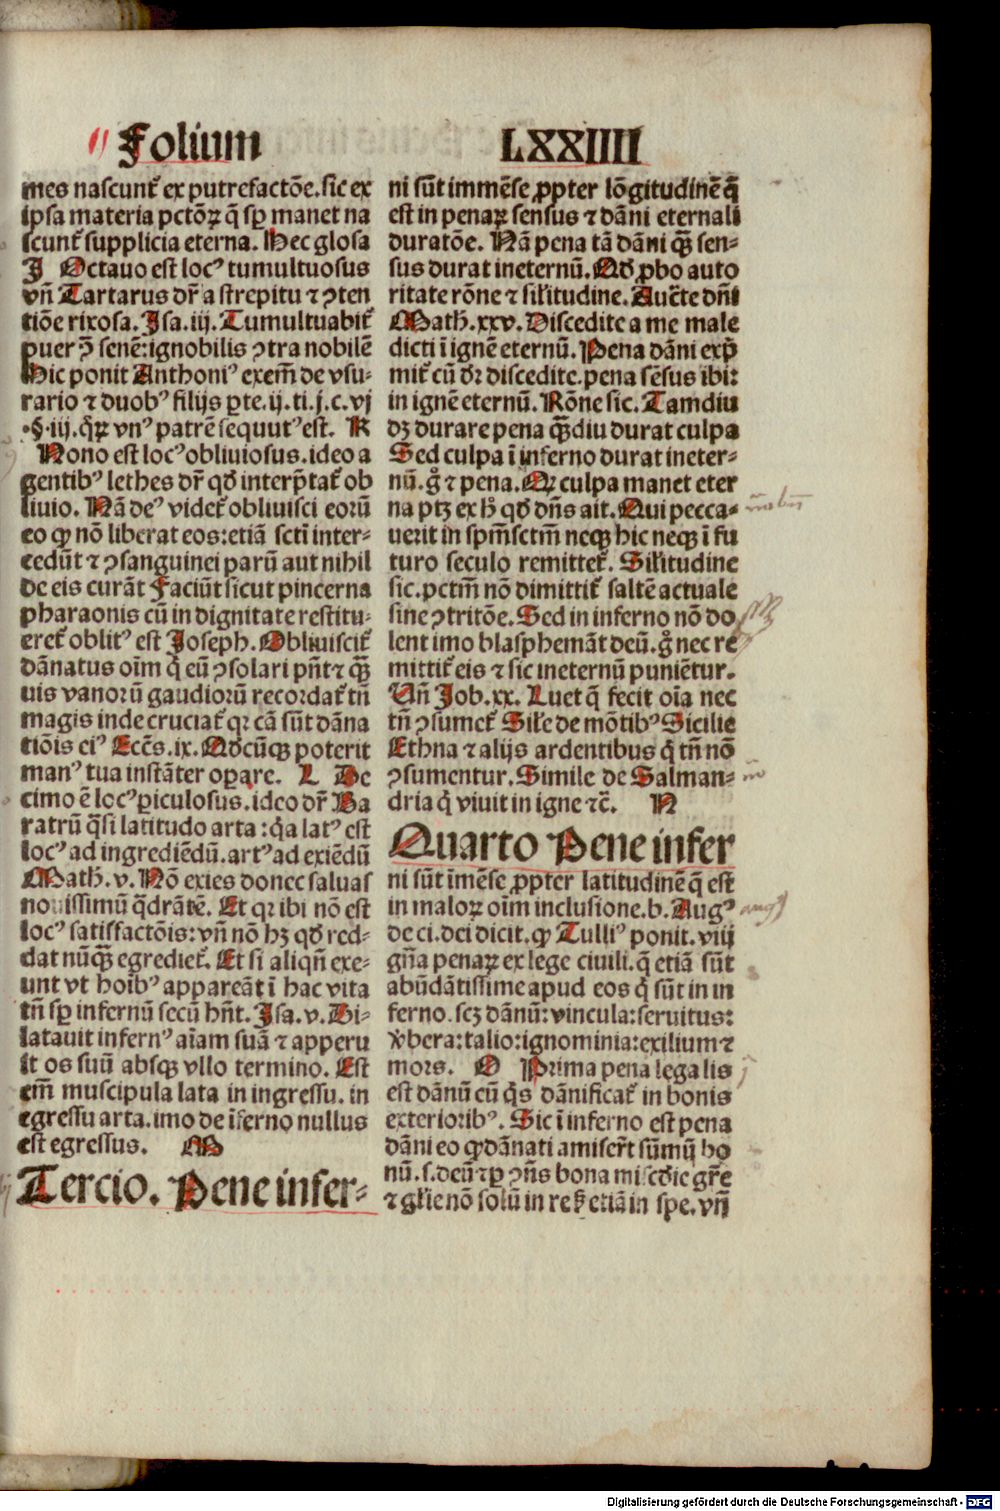 Folium LXXIIII
mes nascunt᷑ ex putrefactōe. sic ex
ipsa materia pctōꝝ q̄ sp̱ manet na
scunt᷑ supplicia eterna. Hec glosa
J Octauo est locꝰ tumultuosus
vn̄ Tartarus dr̄ a strepitu ⁊ ꝯten
tiōe rixosa. Isa. iij. Tumultuabit᷑
puer ꝯ̄ senē: ignobilis ꝯtra nobilē
Hic ponit Anthoniꝰ exem̄ de vsu-
rario ⁊ duobꝰ filijs ꝑte. ij. ti. j. c. vj
.§. iij. q̄ꝝ vnꝰ patrē sequutꝰ est. K
Nono est locꝰ obliuiosus. ideo a
gentibꝰ lethes dr̄ qd̄ interp̄tat᷑ ob
liuio. Nā deꝰ videt᷑ obliuisci eorū
eo ꝙ nō liberat eos: etiā scti inter-
cedūt ⁊ ꝯsanguinei parū aut nihil
de eis curāt Faciūt sicut pincerna
pharaonis cū in dignitate restitu-
eret᷑ oblitꝰ est Joseph. Obliuiscit᷑
dānatus oīm q̄ eū ꝯsolari pn̄t ⁊ qꝫ̄
uis vanorū gaudiorū recordat᷑ tn̄
magis inde cruciat᷑ qꝛ cā sūt dāna
tiōis eiꝰ Ecēs. ix. Qd̄cūqꝫ poterit
manꝰ tua instāter oꝑare. L De
cimo ē locꝰ ꝑiculosus. ideo dr̄ Ba
ratrū q̄si latitudo arta: q̄a latꝰ est
locꝰ ad ingrediēdū. artꝰ ad exiēdū
Math̄. v. Nō exies donec saluas
nouissimū q̄drātē. Et qꝛ ibi nō est
locꝰ satisfactōis: vn̄ nō hꝫ qd̄ red-
dat nūqꝫ̄ egrediet᷑. Et si aliqn̄ exe-
unt vt hoībꝰ appareāt ī hac vita
tn̄ sp̱ infernū secū hn̄t. Isa. v. Di-
latauit infernꝰ aīam suā ⁊ apperu
it os suū absqꝫ vllo termino. Est
em̄ muscipula lata in ingressu. in
egressu arta. imo de īferno nullus
est egressus. M
Tercio. Pene infer-
ni sūt immēse ꝓpter lōgitudinē q̄
est in penaꝝ sensus ⁊ dāni eternali
duratōe. Nā pena tā dāni qꝫ̄ sen-
sus durat ineternū. Qd̄ ꝓbo auto
ritate rōne ⁊ sil'itudine. Auc̄te dn̄i
Math̄. xxv. Discedite a me male
dicti ī ignē eternū. Pena dāni exp̄
mit᷑ cū dꝛ discedite. pena sēsus ibi:
in ignē eternū. Rōne sic. Tamdiu
dꝫ durare pena qꝫ̄diu durat culpa
Sed culpa ī inferno durat ineter-
nū. g̊ ⁊ pena. Qꝛ culpa manet eter
na ptꝫ ex h̄ qd̄ dn̄s ait. Qui pecca-
uerit in spm̄sctm̄ neqꝫ hic neqꝫ ī fu
turo seculo remittet᷑. Sil'itudine
sic. pctm̄ nō dimittit᷑ saltē actuale
sine ꝯtritōe. Sed in inferno nō do
lent imo blasphemāt deū. g̊ nec re
mittit᷑ eis ⁊ sic ineternū puniētur.
Vn̄ Job. xx. Luet q̄ fecit oīa nec
tn̄ ꝯsumet᷑ Sil'e de mōtibꝰ Sicilie
Ethna ⁊ alijs ardentibus q̄ tn̄ nō
ꝯsumentur. Simile de Salman-
dria q̄ viuit in igne ⁊c̄. N
Quarto Pene infer
ni sūt īmēse ꝓpter latitudinē q̄ est
in maloꝝ oīm inclusione. b. Augꝰ
de ci. dei dicit. ꝙ Tulliꝰ ponit. viij
gn̄a penaꝝ ex lege ciuili. q̄ etiā sūt
abūdātissime apud eos q̄ sūt in in
ferno. scꝫ dānū: vincula: seruitus:
v̄bera: talio: ignominia: exilium ⁊
mors. O Prima pena legalis
est dānū cū q̄s dānificat᷑ in bonis
exterioribꝰ. Sic ī inferno est pena
dāni eo ꝙ dānati amiser̄t sūmū bo
nū. s. deū ⁊ ꝑ ꝯn̄s bona miscd̄ie gr̄e
⁊ gl'ie nō solū in re sꝫ etiā in spe. vn̄